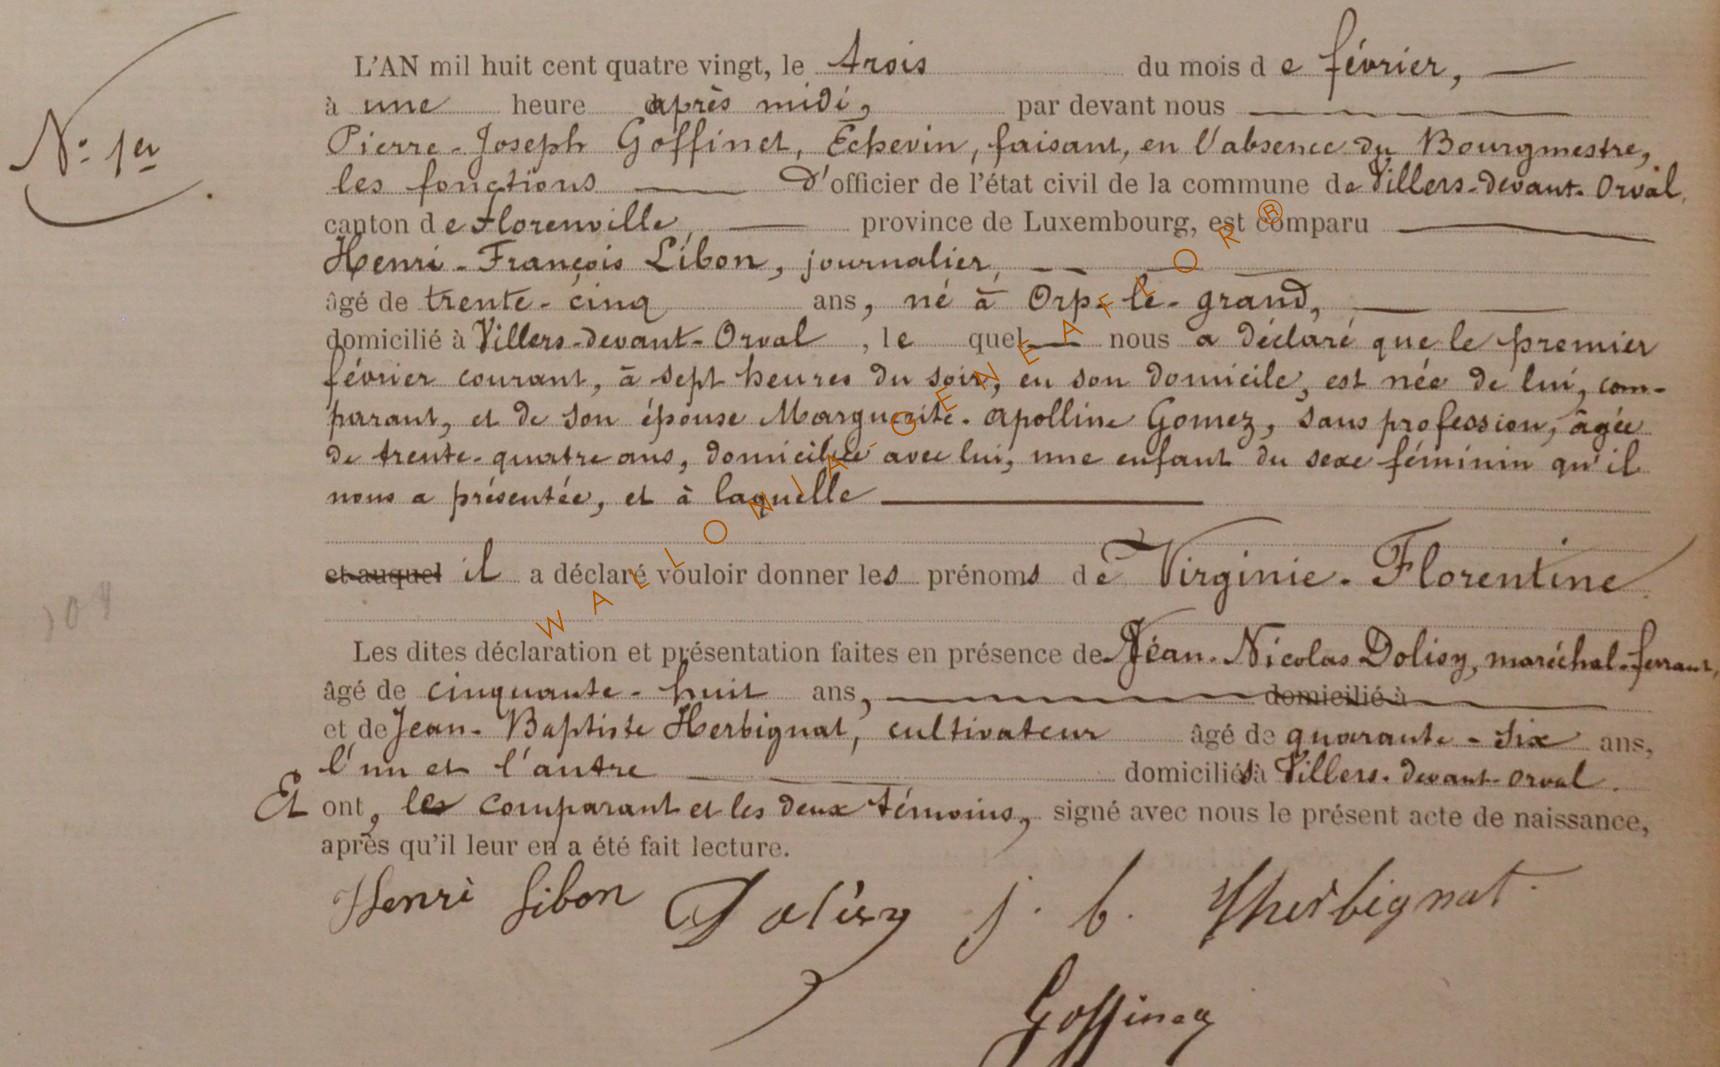 L'AN mil huit cent quatre vingt, le trois du mois de février,
N° 1er
à une heure après midi, par devant nous
Pierre-Joseph Goffinet, Echevin, faisant, en l'absence du Bourgmestre,
les fonctions d'officier de l'état civil de la commune de Villers-devant-Orval,
canton de Florenville, province de Luxembourg, est comparu
Henri-François Libon, journalier,
âgé de trente-cinq ans, né à Orp-le-grand,
domicilié à Villers-devant-Orval, lequel nous a déclaré que le premier
février courant, à sept heures du soir, en son domicile, est née de lui, com-
parant, et de son épouse Marguerite-Apolline Gomez, sans profession, âgée
de trente-quatre ans, domiciliée avec lui, une enfant du sexe féminin qu'il
nous a présentée, et à laquelle
et auquel il a déclaré vouloir donner les prénoms de Virginie-Florentine
Les dites déclaration et présentation faites en présence de Jean-Nicolas Dolisy, maréchal-ferrant,
âgé de cinquante-huit ans, domicilié à
et de Jean-Baptiste Herbignat, cultivateur âgé de quarante-six ans,
l'un et l'autre domiciliés à Villers-devant-Orval.
Et ont, les comparant et les deux témoins, signé avec nous le présent acte de naissance,
après qu'il leur en a été fait lecture.
Henri Libon Dolisy j. b. Herbignat
Goffinet
WALLONIA-GENEAFLOR®